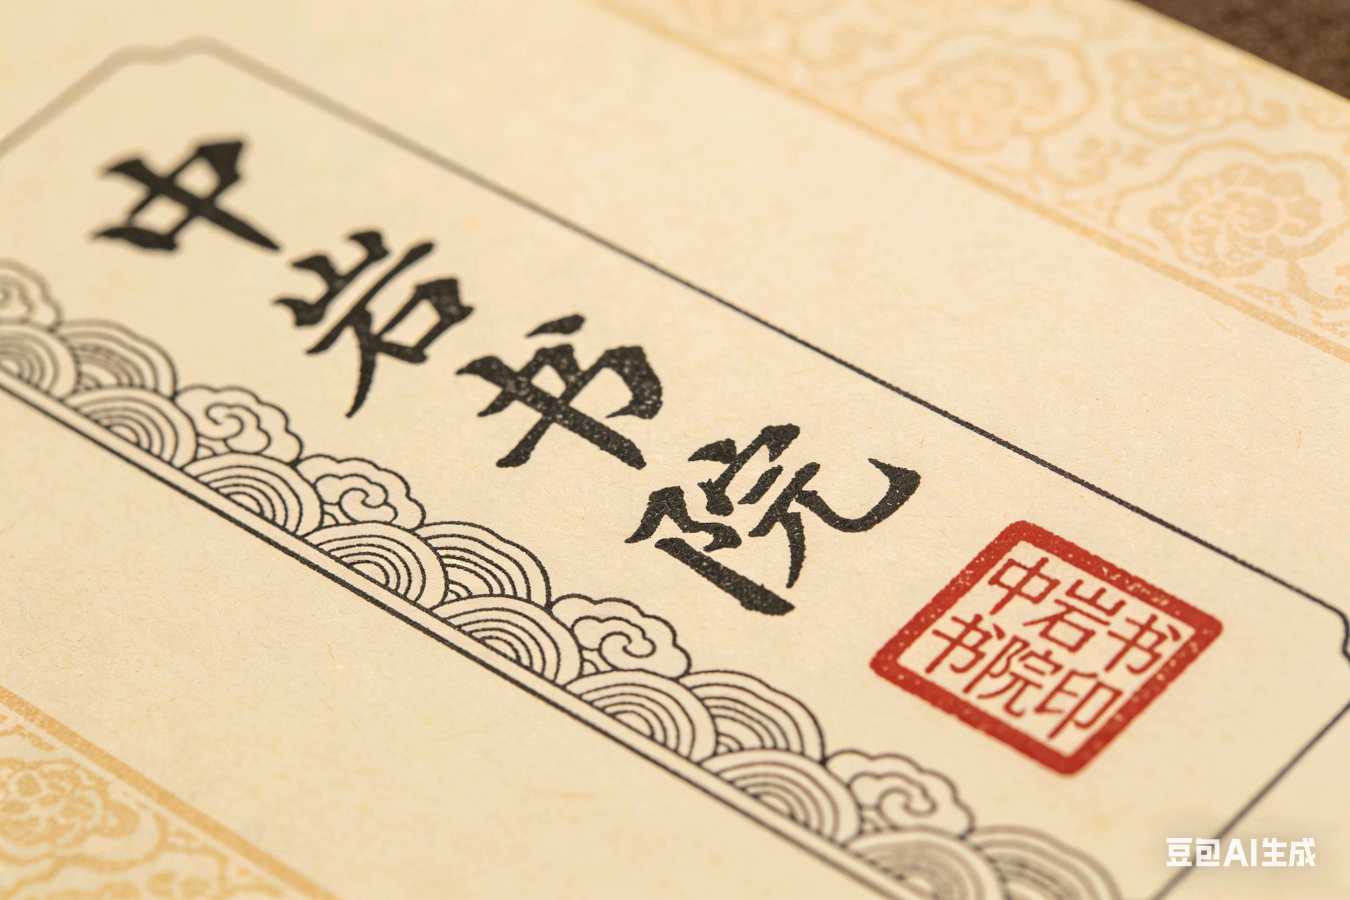 中岩书院
中岩书
书院印
豆包AI生成